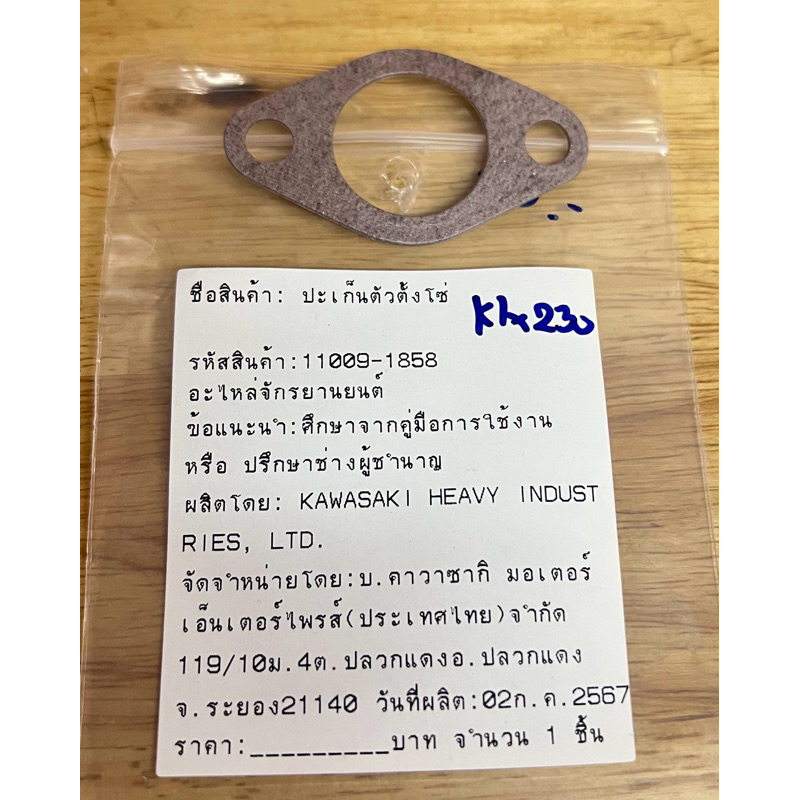 ชื่อสินค้า: ปะเก็นตัวตั้งโซ่
Klx230
รหัสสินค้า:11009-1858
อะไหล่จักรยานยนต์
ข้อแนะนำ:ศึกษาจากคู่มือการใช้งาน
หรือ ปรึกษาช่างผู้ชำนาญ
ผลิตโดย: KAWASAKI HEAVY INDUST
RIES, LTD.
จัดจำหน่ายโดย:บ.คาวาซากิ มอเตอร์
เอ็นเตอร์ไพรส์(ประเทศไทย)จำกัด
119/10ม.4ต.ปลวกแดงอ.ปลวกแดง
จ.ระยอง21140 วันที่ผลิต:02ก.ค.2567
ราคา:_________บาท จำนวน 1 ชิ้น